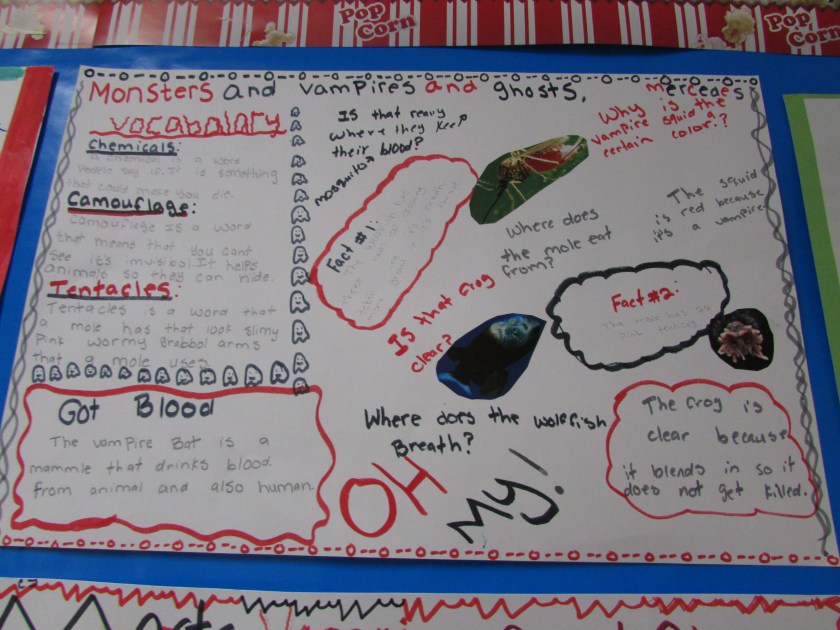 POP
CORN
POP
CORN
Monsters and vampires and ghosts,
mercedes
Vocabalary
Chemicals:
a chemical is a word
People say is. It is something
that could make you die.
Camouflage:
Camouflage Is a word
that means that you cant
see it's invisibol. It helps
animals so they can hide.
Tentacles:
Tentacles is a word that
a mole has that look slimy
Pink wormy arms
that a mole uses
Got Blood
The vampire Bat is a
mammle that drinks blood.
From animal and also human.
Is that really
where they keep
their blood?
mosquito
Why is the
vampire squid a
certain color.?
Fact #1:
Where does
the mole eat
from?
The squid
is red because
it's a vampire
Is that frog
clear?
Fact #2:
The mole has 22
pink
Where does the wolffish
Breath?
OH
My!
The frog is
clear because
it blends in so it
does not get killed.